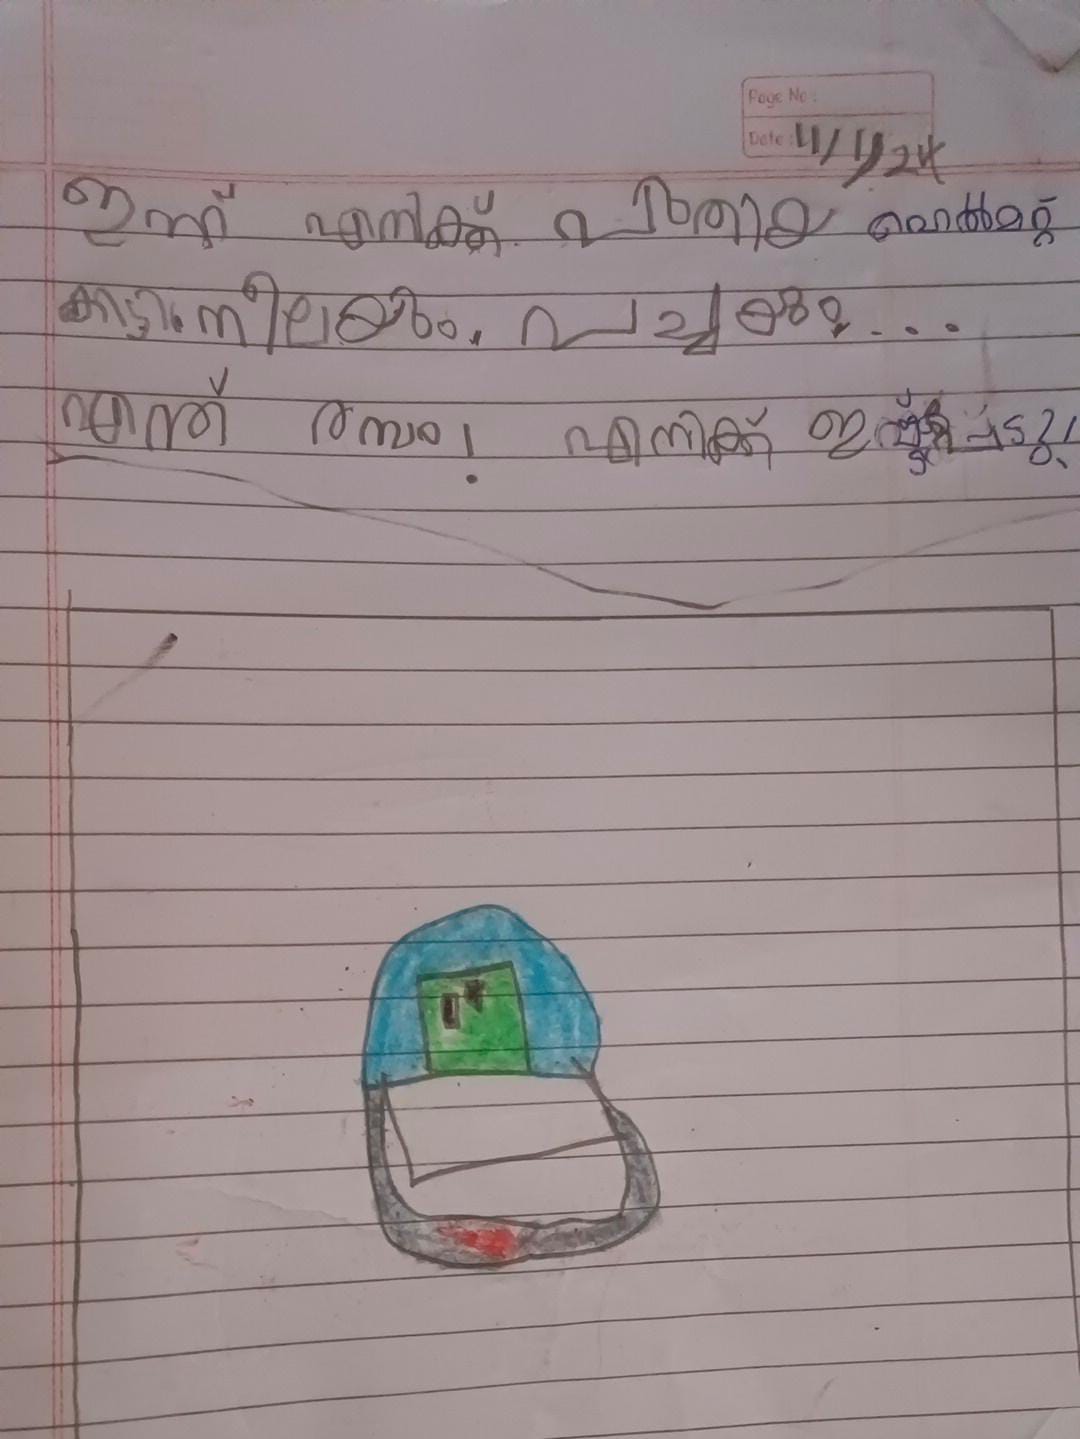 Page No :
Date : 11/1/24
ഇന്ന് എനിക്ക് പുതിയ ഹെൽമറ്റ്
കിട്ടി. നീലയും, പച്ചയും...
എന്ത് രസം! എനിക്ക് ഇഷ്ടപ്പെട്ടു!